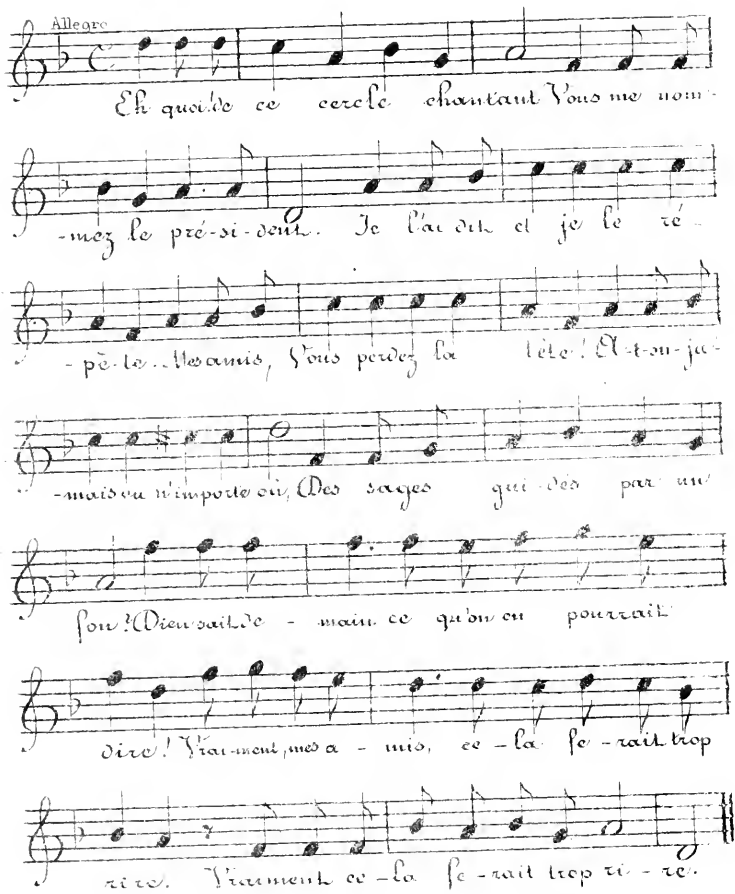 Allegro
Eh quoi! de ce cercle chantant Vous me nom-
-mez le pré-si-dent. Je l'ai dit et je le ré-
-pè-te. Mes amis, Vous perdez la tête! A-t-on ja-
-mais vu n'importe où, Des sages gui-dés par un
fou? Dieu sait de - main ce qu'on en pourrait
dire! Vrai-ment, mes a - mis, ce-la se-rait trop
rire. Vraiment ce-la se-rait trop ri-re.